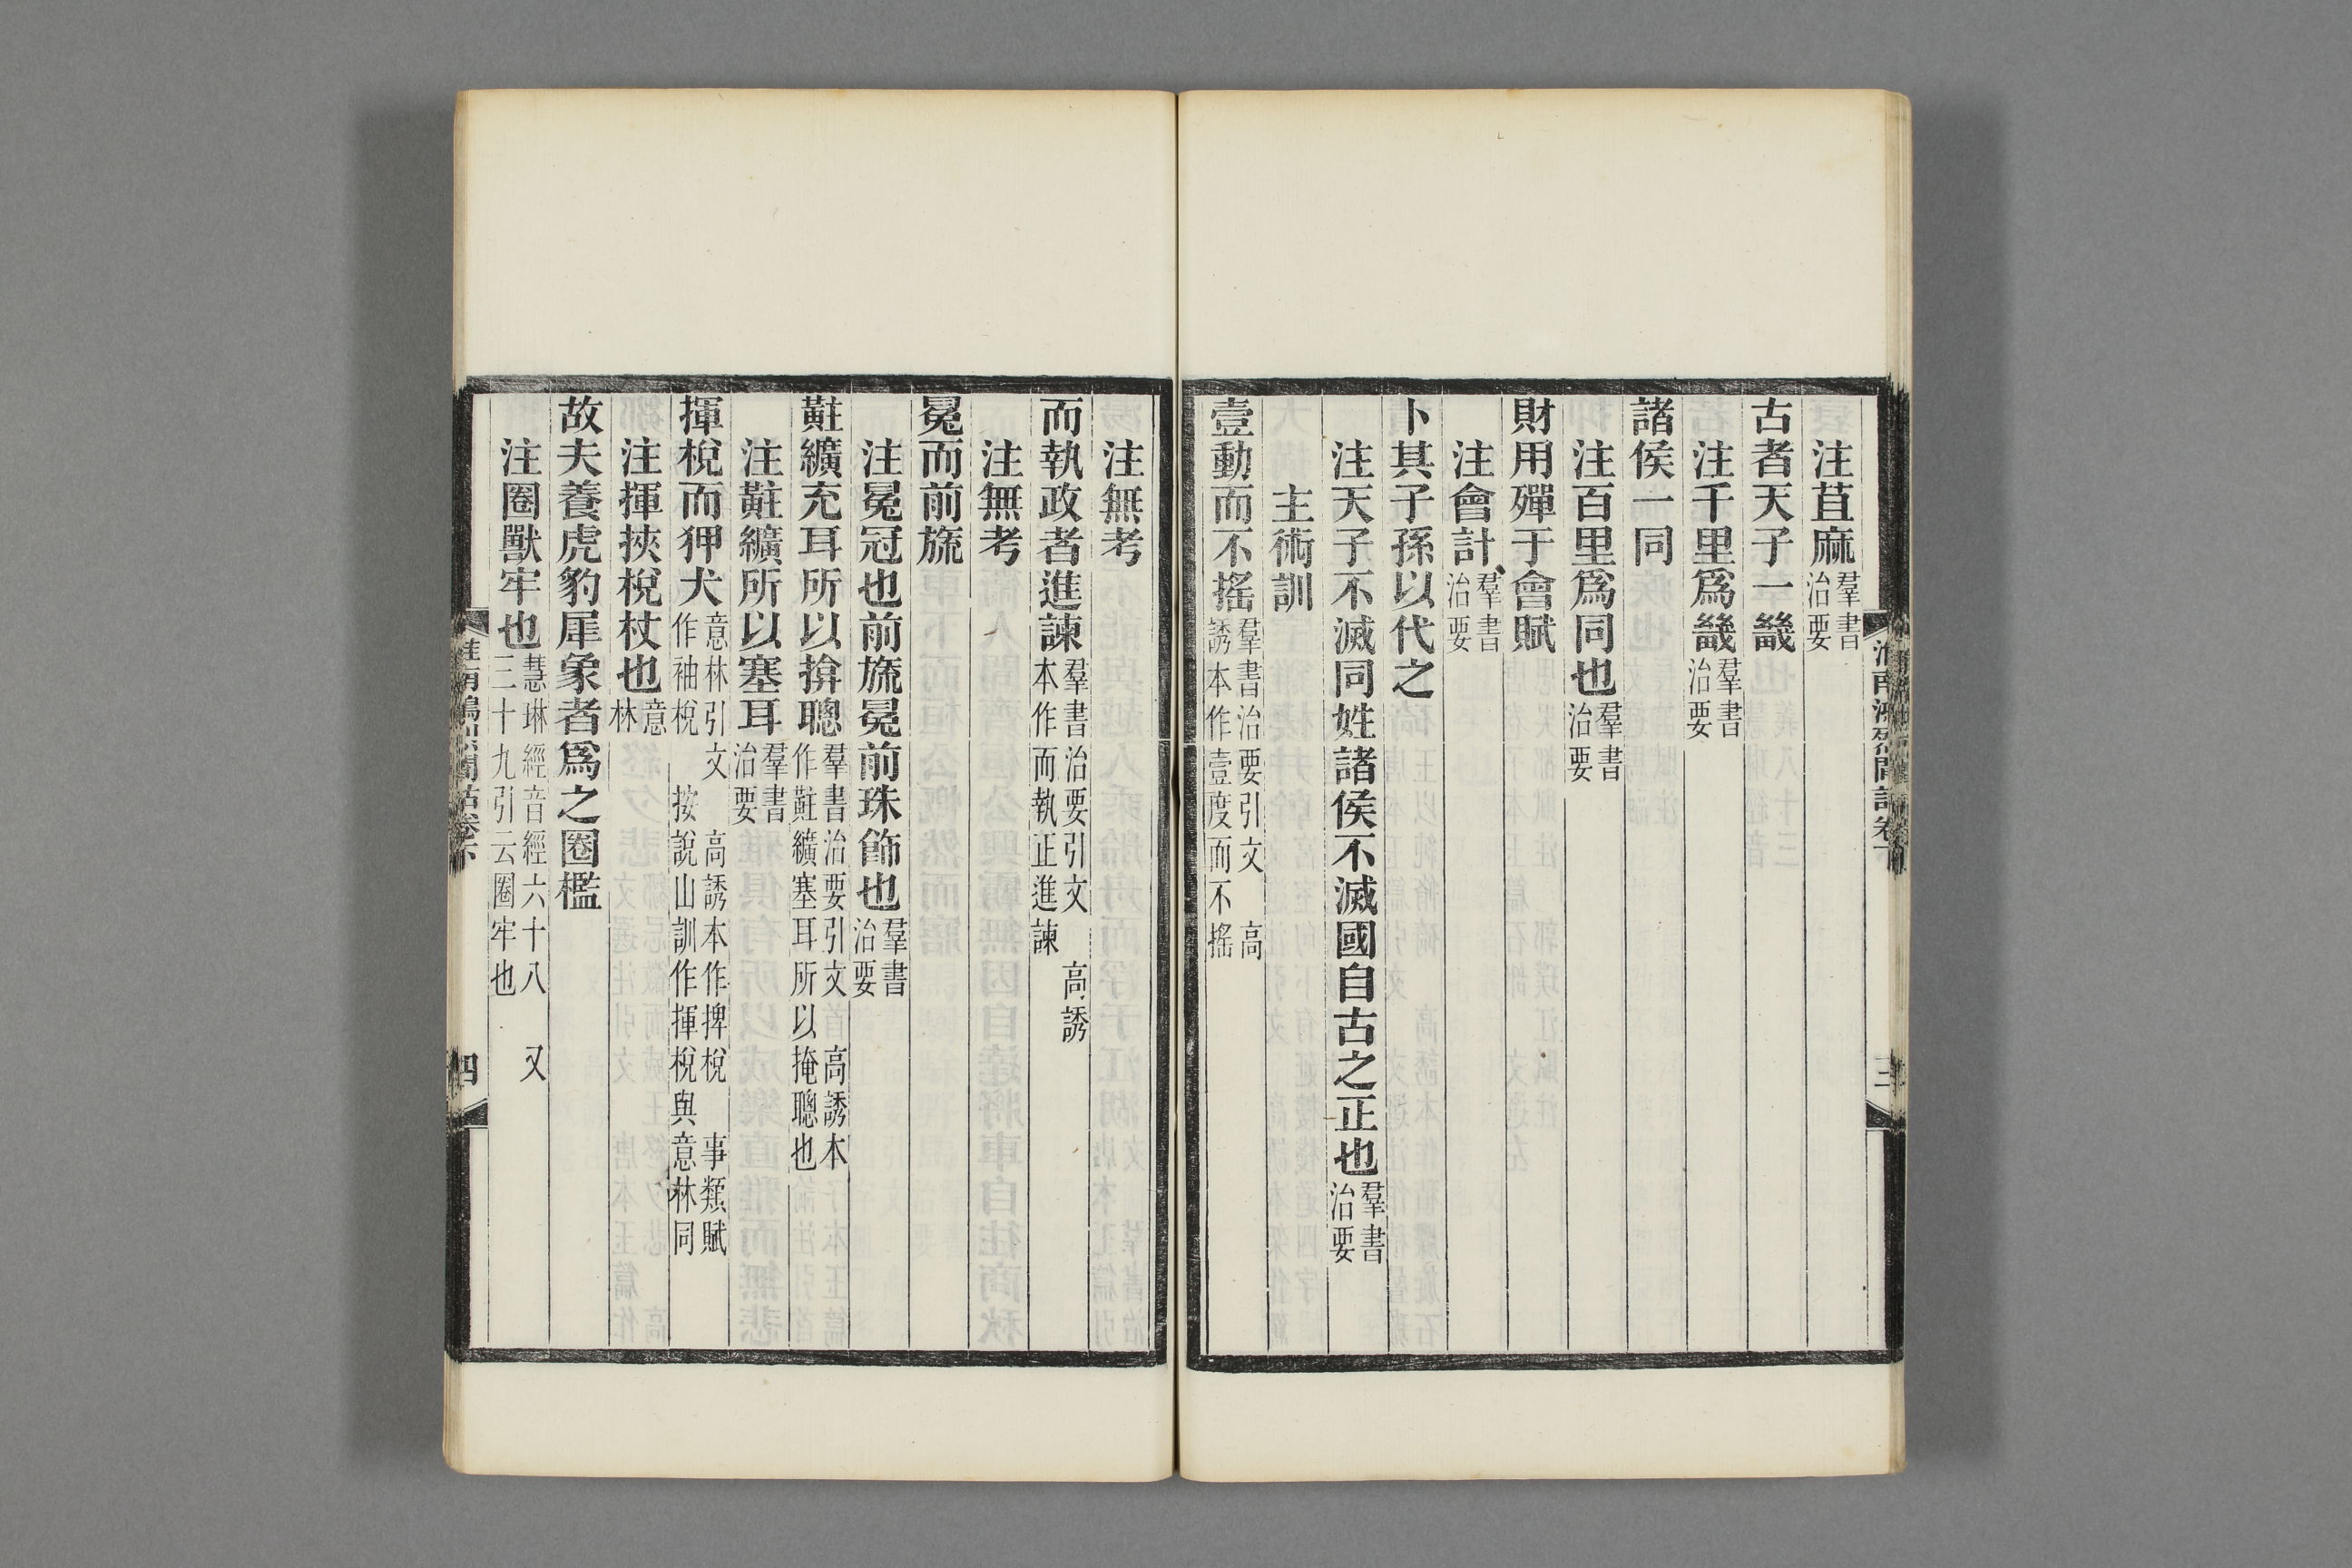 注苴麻羣書治要
古者天子一畿
注千里爲畿羣書治要
諸侯一同
注百里爲同也羣書治要
財用殫于會賦
注會計羣書治要
卜其子孫以代之
注天子不滅同姓諸侯不滅國自古之正也羣書治要
主術訓
壹動而不搖羣書治要引文 高誘本作壹度而不搖
注無考
而執政者進諫羣書治要引文 高誘本作而執正進諫
注無考
冕而前旒
注冕冠也前旒冕前珠飾也羣書治要
黈纊充耳所以揜聰羣書治要引文 高誘本作黈纊塞耳所以掩聰也
注黈纊所以塞耳羣書治要
揮梲而狎犬意林引文 高誘本作捭梲 事類賦作袖梲 按說山訓作揮梲與意林同
注揮挾梲杖也意林
故夫養虎豹犀象者爲之圈檻
注圈獸牢也慧琳經音經六十八 又三十九引云圈牢也
四